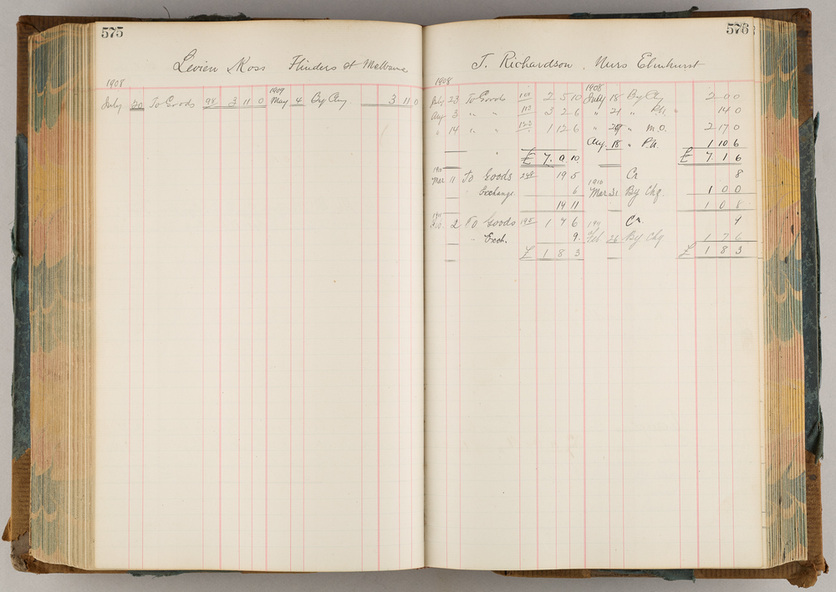 575
Levien Moss Flinders St Melbourne
1908 1909
July 20 To Goods 94 3 11 0 May 4 By Chq 3 11 0
576
T. Richardson, Nurs Elmhurst
1908 1908
July 23 To Goods 2 5 10 July 18 By Chq 2 0 0
Aug 3 " " 112 3 2 6 " 21 " P.N " 14 0
" 14 " " 1 12 6 " " M.O. 2 17 0
Aug 18 " P.N. 1 10 6
£ 7 0 10 £ 7 1 6
Mar 11 To Goods 19 5 Cr 8
1910
Exchange 6 Mar 31 By Chq. 1 0 0
14 11 1 0 8
1911
2 To Goods 195 1 7 6 Cr 4
" Exch. 9 Feb 25 By Chq 1 7 6
£ 1 8 3 £ 1 8 3